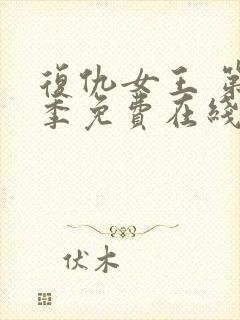 復仇女王 第
季免費在綫
伏木